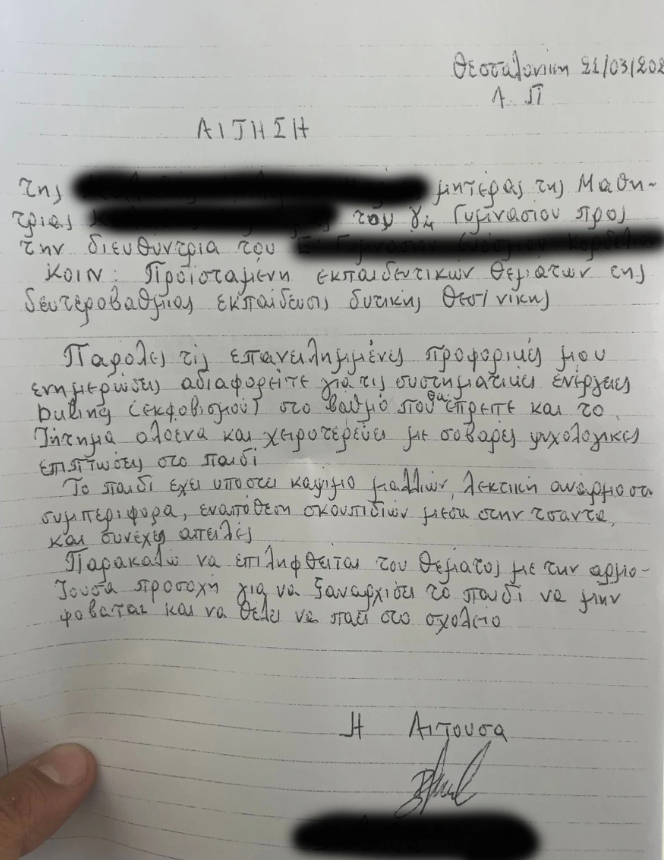 Θεσσαλονίκη 21/03/202
Α Π
ΑΙΤΗΣΗ
της μητέρας της Μαθη-
τριας του γ4 Γυμνασίου προς
την διευθύντρια του
ΚΟΙΝ: Προϊσταμένη εκπαιδευτικών θεμάτων της
δευτεροβαθμιας εκπαίδευσις δυτικής θεσ/νίκης
Παρολες τις επανειλημμένες προφορικές μου
ενημερώσεις αδιαφορείτε για τις συστηματικές ενέργειες
buling (εκφοβισμού) στο βαθμό που θα έπρεπε και το
ζήτημα ολοενα και χειροτερεύει με σοβαρές ψυχολογικες
επιπτώσεις στο παιδί
Το παιδί εχει υποστει καψιμο μαλλιών, λεκτική αναρμοστη
συμπεριφορα, εναπόθεση σκουπιδιών μεσα στην τσαντα,
και συνεχεις απειλές
Παρακαλω να επιληφθείται του θέματος με την αρμο-
ζουσα προσοχή για να ξαναρχισει το παιδί να μην
φοβαται και να θέλει να παει στο σχολειο
Η Αιτουσα